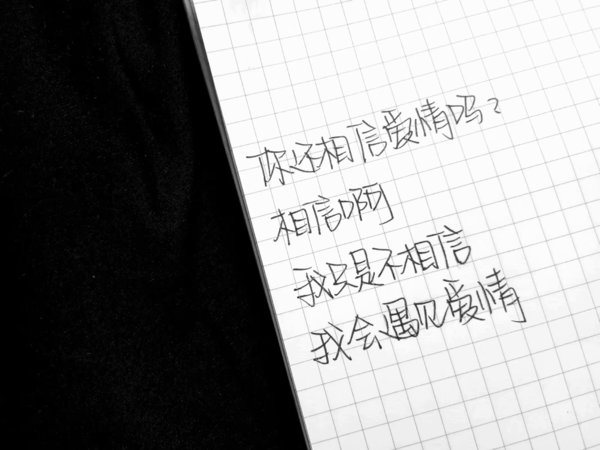 你还相信爱情吗?
相信啊
我只是不相信
我会遇见爱情